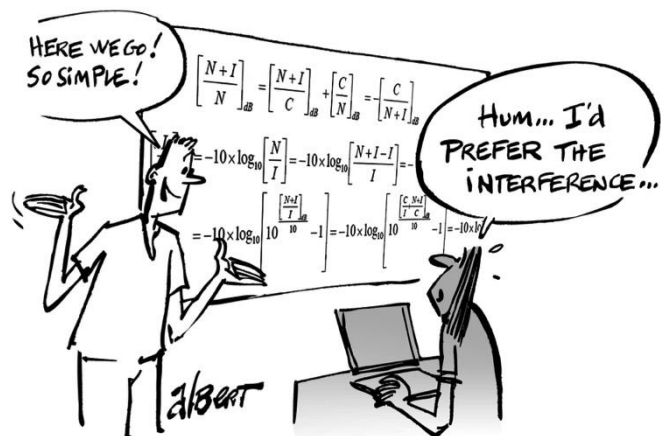 HERE WE GO!
SO SIMPLE!
[N+I / N]dB = [N+I / C]dB + [C / N]dB = -[C / N+I]dB
= -10×log10[N / I] = -10×log10[N+I-I / I] = -
= -10×log10[10^([N+I / I]dB / 10) -1] = -10×log10[10^([C / I + N+I / C]dB / 10) -1] = -10×lo
Hum... I'd
PREFER THE
iNTERFERENCE...
alBERT